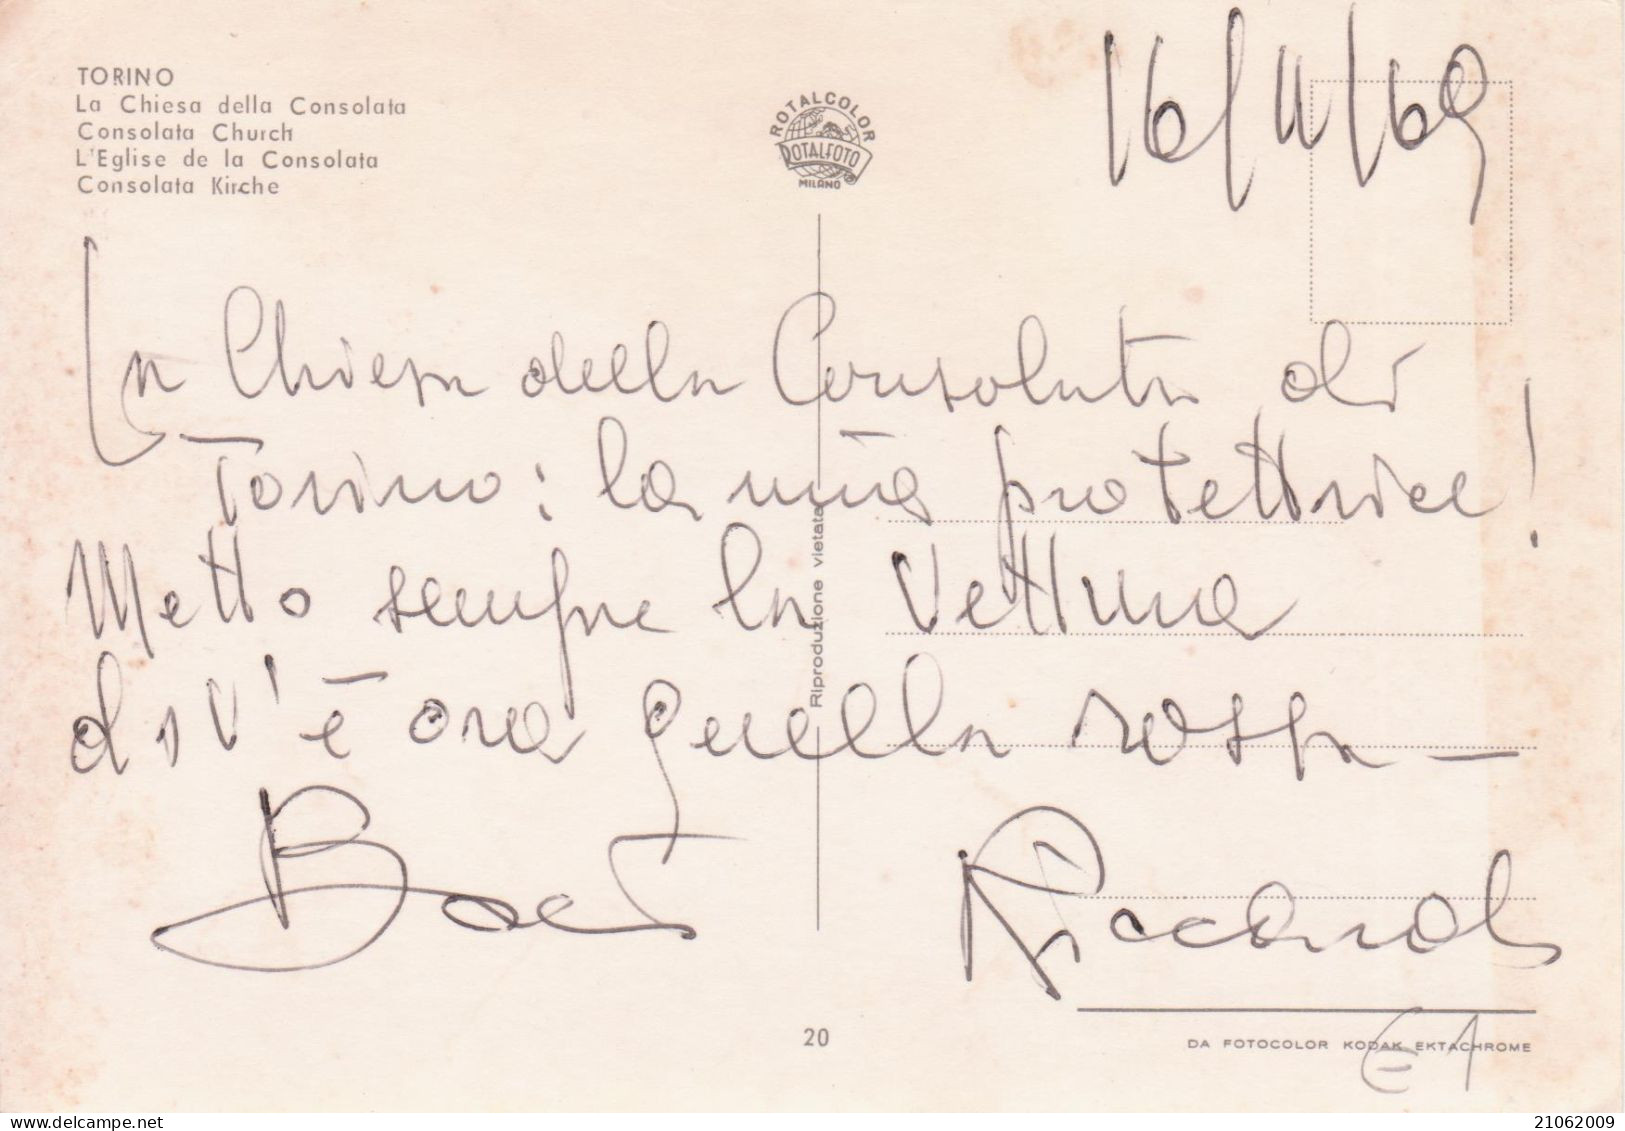 TORINO
La Chiesa della Consolata
Consolata Church
L'Eglise de la Consolata
Consolata Kirche
ROTALCOLOR
ROTALFOTO
MILANO
16/11/69
La Chiesa della Consolata di
Torino: la mia protettrice!
Metto sempre la vettura
dov'è ora quella rossa —
Baci
Riccardo
Riproduzione vietata
20
DA FOTOCOLOR KODAK EKTACHROME
€1
21062009